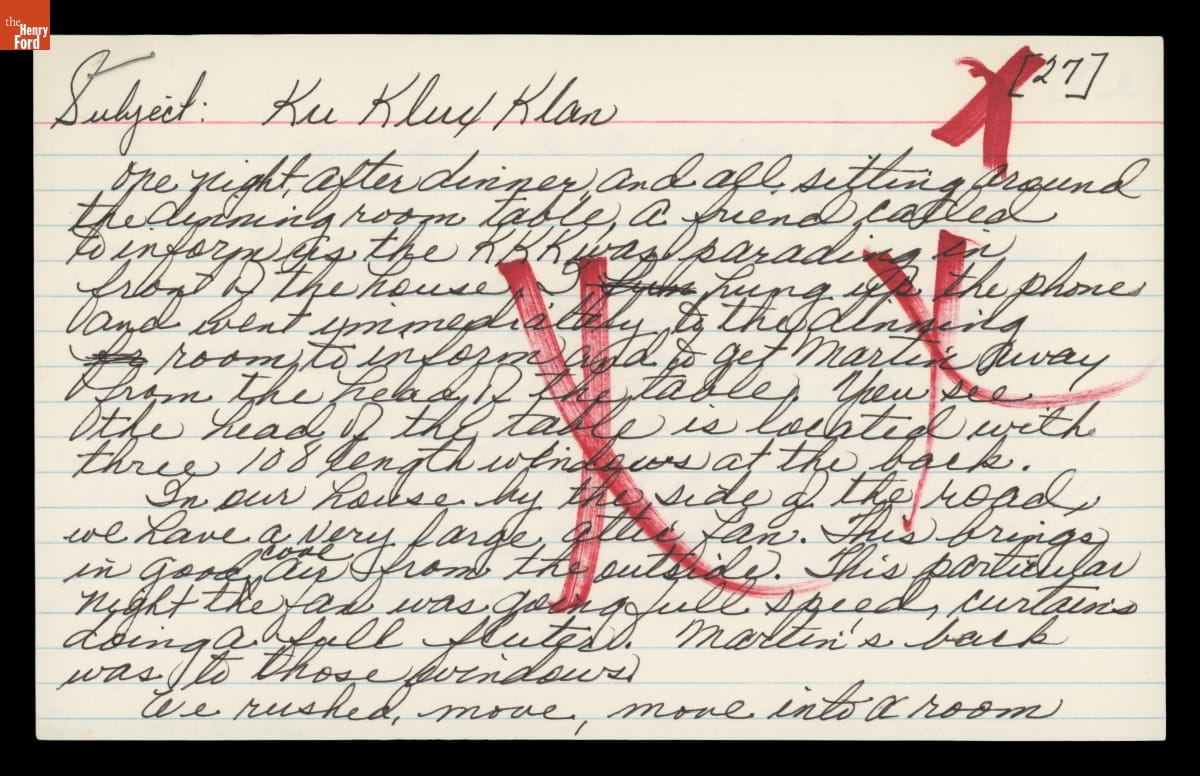 the
Henry
Ford
[27]
Subject: Ku Klux Klan
One night, after dinner, and all sitting around
the dinning room table, a friend called
to inform us the KKK was parading in
front of the house. I hung up the phone
and went immediately to the dinning
room, to inform and to get Martin away
from the head of the table. You see
the head of the table is located with
three 108 length windows at the back.
In our house by the side of the road,
we have a very large attic fan. This brings
in good cool air from the outside. This particular
night the fan was going full speed, curtains
doing a full flutter. Martin's back
was to those windows.
We rushed, move, move into a room